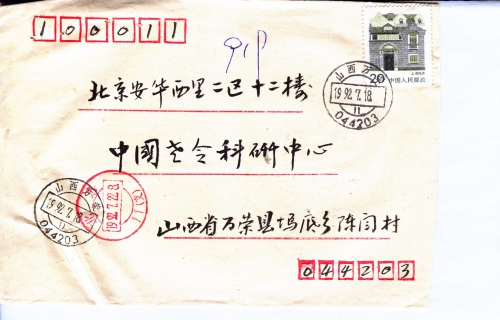 100011
北京安华西里二区十二楼
中国老令科研中心
山西省万荣县埝底乡陈间村
044203
20
中国人民邮政
山西万荣
1992.7.18
11
044203
山西万荣
1992.7.18
11
044203
1992.7.22.8